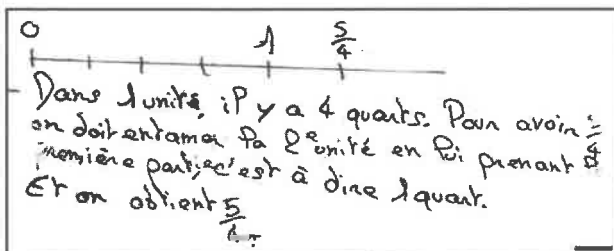 0 1 5/4
Dans 1 unité, il y a 4 quarts. Pour avoir 5/4
on doit entamer la 2e unité en lui prenant sa
première partie, c'est à dire 1 quart.
Et on obtient 5/4.